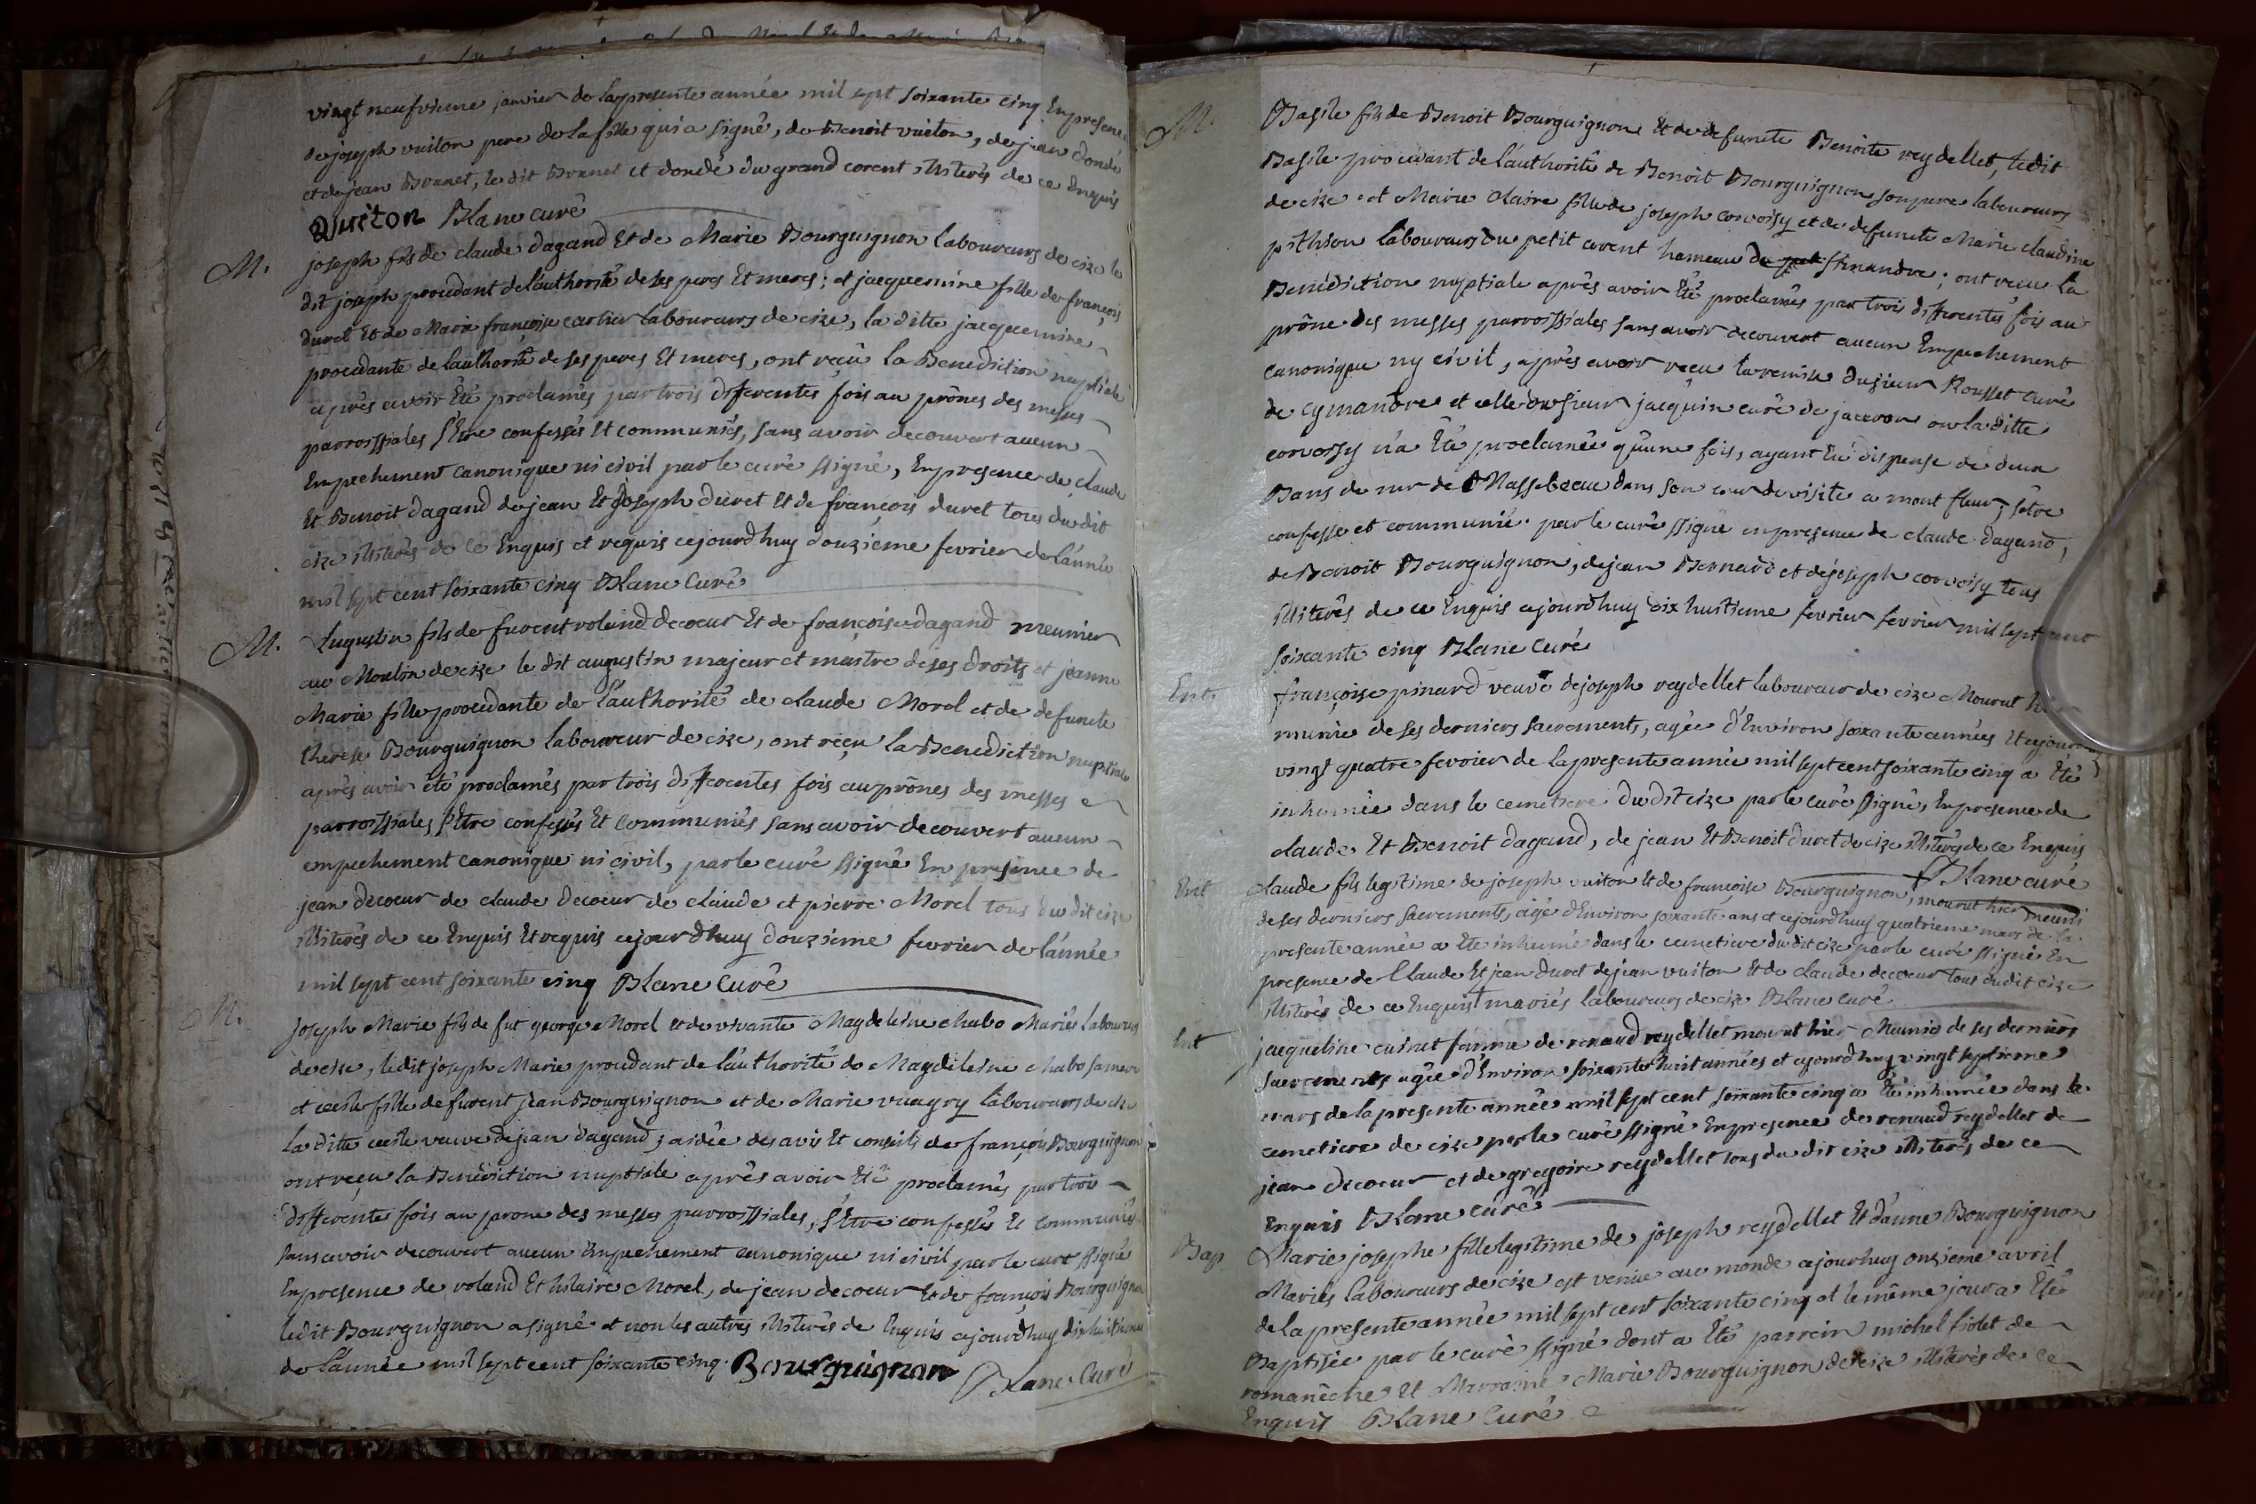 vingt neufvieme janvier de la presente année mil sept soixante cinq En presence
de joseph vuiton pere de la fille qui a signé, de Benoit vuiton, de jean dondé
et de jean Brunet, le dit Brunet et dondé du grand corent illiterés de ce Enquis
Vuiton Blanc curé
M. joseph fils de claude dagand Et de Marie Bourguignon laboureurs de cize le
dit joseph procedant de l'authorité de ses peres Et meres; et jacquemine fille de françois
duret Et de Marie françoise cartier laboureurs de cize, la ditte jacquemine
procedante de l'authorité de ses peres Et meres, ont reçu la Benediction nuptiale
après avoir Eté proclamés par trois differentes fois au prônes des messes
parroissiales s'Etre confessés Et communiés, sans avoir decouvert aucun
Empechement canonique ni civil par le curé ssigné, En presence de claude
Et Benoit dagand de jean Et joseph duret Et de françois duret tous du dit
cize illiterés de ce Enquis et requis cejourdhuy douzieme fevrier de l'année
mil sept cent soixante cinq Blanc Curé
M. Augustin fils de fu voland decoeur Et de françoise dagand meunier
au Moulin de cize le dit augustin majeur et maitre de ses droits et jeanne
Marie fille procedante de l'authorité de claude Morel et de defuncte
therese Bourguignon laboureur de cize, ont reçu la Benediction nuptiale
après avoir été proclamés par trois differentes fois au prônes des messes
parroissiales s'Etre confessés Et communiés sans avoir decouvert aucun
empechement canonique ni civil, par le curé ssigné En presence de
jean decoeur de claude decoeur de claude et pierre Morel tous du dit cize
illiterés de ce Enquis Et requis cejourdhuy douzieme fevrier de l'année
mil sept cent soixante cinq Blanc Curé
M. joseph Marie fils de fut george Morel et de vivante Magdeleine chabo Mariés laboureurs
de cize, le dit joseph Marie procedant de l'authorité de Magdeleine chabo sa mere
et cecile fille de jean Bourguignon et de Marie laboureurs de cize
la ditte cecile veuve de jean dagand, aidée des avis Et conseils de françois Bourguignon
ont reçu la Benediction nuptiale après avoir Eté proclamés par trois
differentes fois au prone des messes parroissiales, s'Etre confessés Et communiés
sans avoir decouvert aucun Empechement canonique ni civil par le curé ssigné
En presence de voland Et hilaire Morel, de jean decoeur Et de françois Bourguignon
le dit Bourguignon a signé et non les autres illiterés de Enquis cejourdhuy dixhuitieme
de l'année mil sept cent soixante cinq. Bourguignon Blanc Curé
M. Basile fils de Benoit Bourguignon Et de defuncte Benoite reydellet, le dit
Basile procedant de l'authorité de Benoit Bourguignon son pere laboureurs
de cize et Marie Claire fille de joseph corvoisy et de defuncte Marie claudine
pithion laboureurs du petit corent hameau de simandre; ont reçu la
Benediction nuptiale après avoir Eté proclamés par trois differentes fois au
prône des messes parroissiales sans avoir decouvert aucun Empechement
canonique ny civil, après avoir reçu la remise du sieur Rousset curé
de cymandre et celle du sieur jacquin curé de jaceron ou la ditte
corvoisy n'a Eté proclamée qu'une fois, ayant Eu dispense de deux
Bans de mr de dans son cour de visite a mont fleur, s'etre
confesse et communié par le curé ssigné en presence de claude dagand,
de Benoit Bourguignon, de jean Bernard et de joseph corvoisy tous
illiterés de ce Enquis cejourdhuy dix huitieme fevrier fevrier mil sept cent
soixante cinq Blanc Curé
Ent. françoise pinard veuve de joseph reydellet laboureur de cize Mourut
munie de ses derniers sacrements, agée d'Environ soixante années Et cejourdhuy
vingt quatre fevrier de la presente année mil sept cent soixante cinq a Eté
inhumée dans le cemetiere du dit cize par le curé ssigné, En presence de
claude Et Benoit dagand, de jean Et Benoit duret de cize illiterés de ce Enquis
Blanc curé
Ent claude fils legitime de joseph vuiton Et de françoise Bourguignon, mourut hier muni
de ses derniers sacrements, agé d'Environ soixante ans et cejourdhuy quatrieme mars de la
presente année a Eté inhumé dans le cemetiere du dit cize par le curé ssigné En
presence de Claude Et jean duret de jean vuiton Et de claude decoeur tous du dit cize
illiterés de ce Enquis † mariés laboureurs de cize Blanc Curé
Ent jacqueline cuinet femme de renaud reydellet mourut hier Munie de ses derniers
sacrements agée d'Environ soixante huit années et cejourdhuy vingt septieme
mars de la presente année mil sept cent soixante cinq a Eté inhumée dans le
cemetiere de cize par le curé ssigné En presence de renaud reydellet de
jean decoeur et de gregoire reydellet tous du dit cize illiterés de ce
Enquis Blanc curé
Bap Marie josephe fille legitime de joseph reydellet Et d'anne Bourguignon
Mariés laboureurs de cize est venue au monde cejourhuy onzieme avril
de la presente année mil sept cent soixante cinq et le même jour a Eté
Baptisée par le curé ssigné dont a Eté parrein michel fiolet de
romanêche Et Marraine Marie Bourguignon de cize illiterés de ce
Enquis Blanc Curé